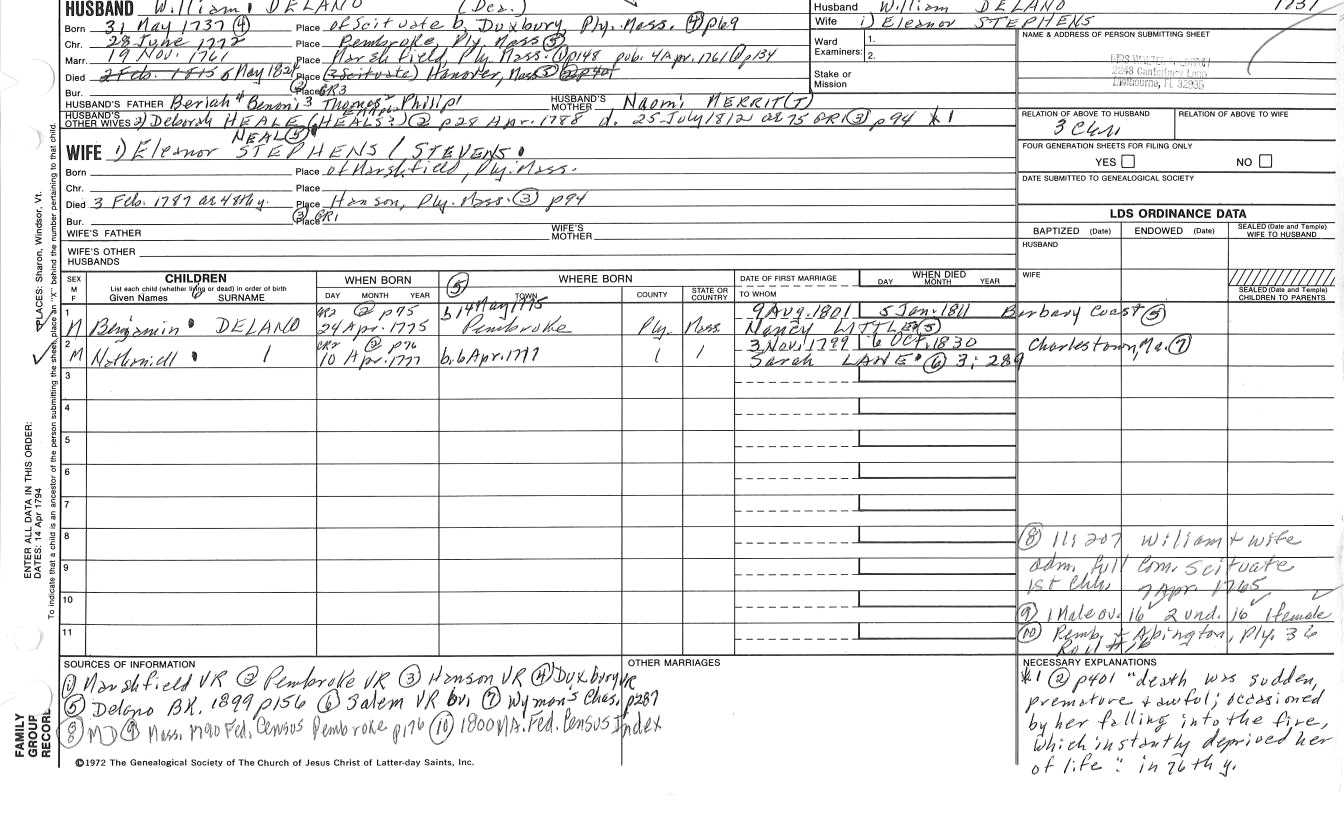 HUSBAND William DELANO (Des.)
Born 31 May 1737 (4) Place of Scituate b. Duxbury Ply. Mass. (4) p69
Chr. 28 June 1772 Place Pembroke, Ply. Mass (5)
Marr. 19 Nov. 1761 Place Marshfield, Ply. Mass. (1) p148 pub. 4 Apr. 1761 (1) p134
Died 2 Feb. 1815 6 May 182 Place (Scituate) Hanover, Mass (5) (2) p401
Bur. (2) Place GR3
HUSBAND'S FATHER Beriah 4 Benoni 3 Thomas 2 Philip 1 HUSBAND'S MOTHER Naomi MERRIT(T)
HUSBAND'S OTHER WIVES 2) Deborah HEALE (HEALS?) (2) p28 Apr. 1788 d. 25 July 1812 ae 75 GR1 (3) p94 *1
NEAL (5)
WIFE 1) Eleanor STEPHENS / STEVENS
Born Place of Marshfield, Ply. Mass.
Chr. Place
Died 3 Feb. 1787 ae 48th y. Place Hanson, Ply. Mass. (3) p94
Bur. (3) Place GR1
WIFE'S FATHER WIFE'S MOTHER
WIFE'S OTHER HUSBANDS
Husband William DELANO 1737
Wife 1) Eleanor STEPHENS
Ward Examiners: 1. 2.
Stake or Mission
NAME & ADDRESS OF PERSON SUBMITTING SHEET
RELATION OF ABOVE TO HUSBAND
RELATION OF ABOVE TO WIFE
FOUR GENERATION SHEETS FOR FILING ONLY
YES NO
DATE SUBMITTED TO GENEALOGICAL SOCIETY
LDS ORDINANCE DATA
BAPTIZED (Date) ENDOWED (Date) SEALED (Date and Temple) WIFE TO HUSBAND
HUSBAND
WIFE
SEALED (Date and Temple) CHILDREN TO PARENTS
SEX M F CHILDREN List each child (whether living or dead) in order of birth Given Names SURNAME
WHEN BORN DAY MONTH YEAR
(5) WHERE BORN TOWN COUNTY STATE OR COUNTRY
DATE OF FIRST MARRIAGE TO WHOM
WHEN DIED DAY MONTH YEAR
1 GR2 (2) p75 b. 14 Mar 1775 9 Aug. 1801 5 Jan. 1811 Barbary Coast (5)
M Benjamin DELANO 24 Apr. 1775 Pembroke Ply. Mass. Nancy LITTLE (5)
2 (2) p76 3 Nov. 1799 6 Oct. 1830 Charlestown, Ma. (7)
M Nathaniell 10 Apr. 1777 b. 6 Apr. 1777 Sarah LANE (6) 3:289
3
4
5
6
7
8
9
10
11
(8) 11:207 William + wife
adm. full Com. Scituate
1st Chh. 7 Apr. 1765
(9) 1 Male ov. 16 2 und. 16 1 female
(10) Pemb. + Abington, Ply. 36
SOURCES OF INFORMATION
(1) Marshfield VR (2) Pembroke VR (3) Hanson VR (4) Duxbury VR
(5) Delano BK. 1899 p156 (6) Salem VR (7) Wyman's Chas. p287
(8) MD (9) Mass. 1790 Fed. Census Pembroke p176 (10) 1800 MA. Fed. Census Index
OTHER MARRIAGES
NECESSARY EXPLANATIONS
*1 (2) p401 "death was sudden,
premature + awful; occasioned
by her falling into the fire,
which instantly deprived her
of life" in 76th y.
©1972 The Genealogical Society of The Church of Jesus Christ of Latter-day Saints, Inc.
FAMILY GROUP RECORD
ENTER ALL DATA IN THIS ORDER:
DATES: 14 Apr 1794
PLACES: Sharon, Windsor, Vt.
To indicate that a child is an ancestor of the person submitting the sheet, place an "X" behind the number pertaining to that child.